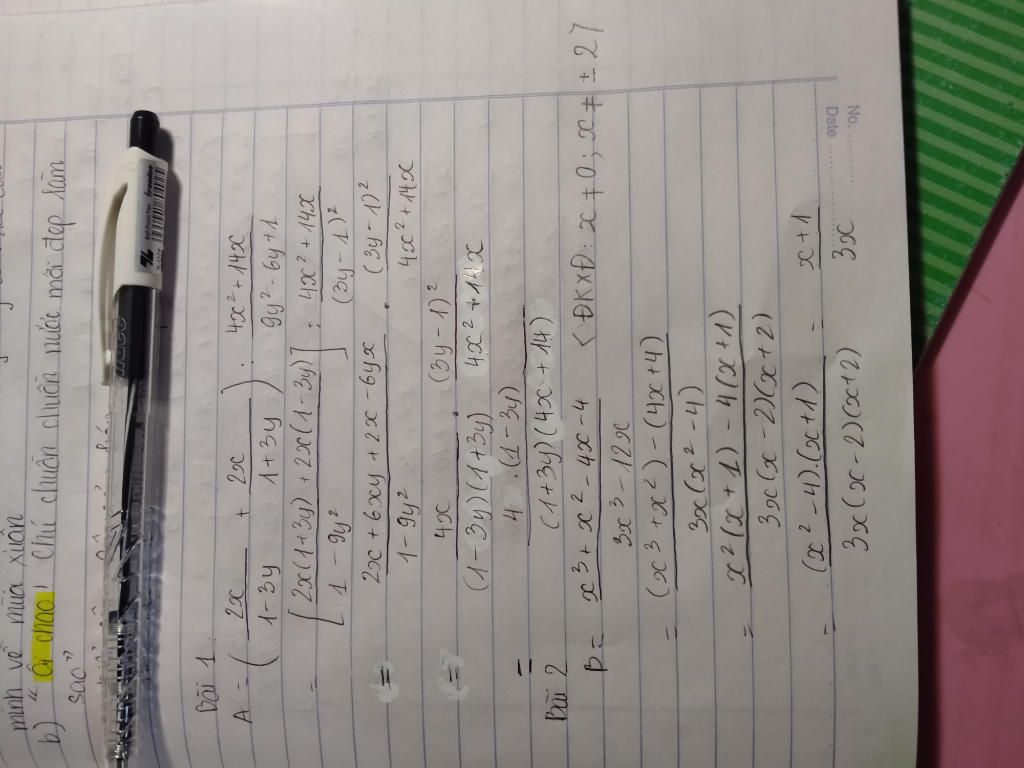 minh về mùa xuân
b) " Ôi chao! Chí chuồn chuồn nước mới đẹp làm
sao"
Bài 1
A = ( 2x/(1-3y) + 2x/(1+3y) ) : (4x² + 14x)/(9y² - 6y + 1)
= [ (2x(1+3y) + 2x(1-3y))/(1 - 9y²) ] : (4x² + 14x)/(3y - 1)²
= (2x + 6xy + 2x - 6yx)/(1 - 9y²) . (3y - 1)²/(4x² + 14x)
= 4x/((1-3y)(1+3y)) . (3y - 1)²/(4x² + 14x)
= (4 . (1 - 3y))/((1+3y)(4x + 14))
Bài 2
B = (x³ + x² - 4x - 4)/(3x³ - 12x) < ĐKXĐ: x ≠ 0; x ≠ ± 2 >
= ((x³ + x²) - (4x + 4))/(3x(x² - 4))
= (x²(x + 1) - 4(x + 1))/(3x(x - 2)(x + 2))
= ((x² - 4).(x + 1))/(3x(x - 2)(x + 2)) = (x + 1)/(3x)
No.
Date